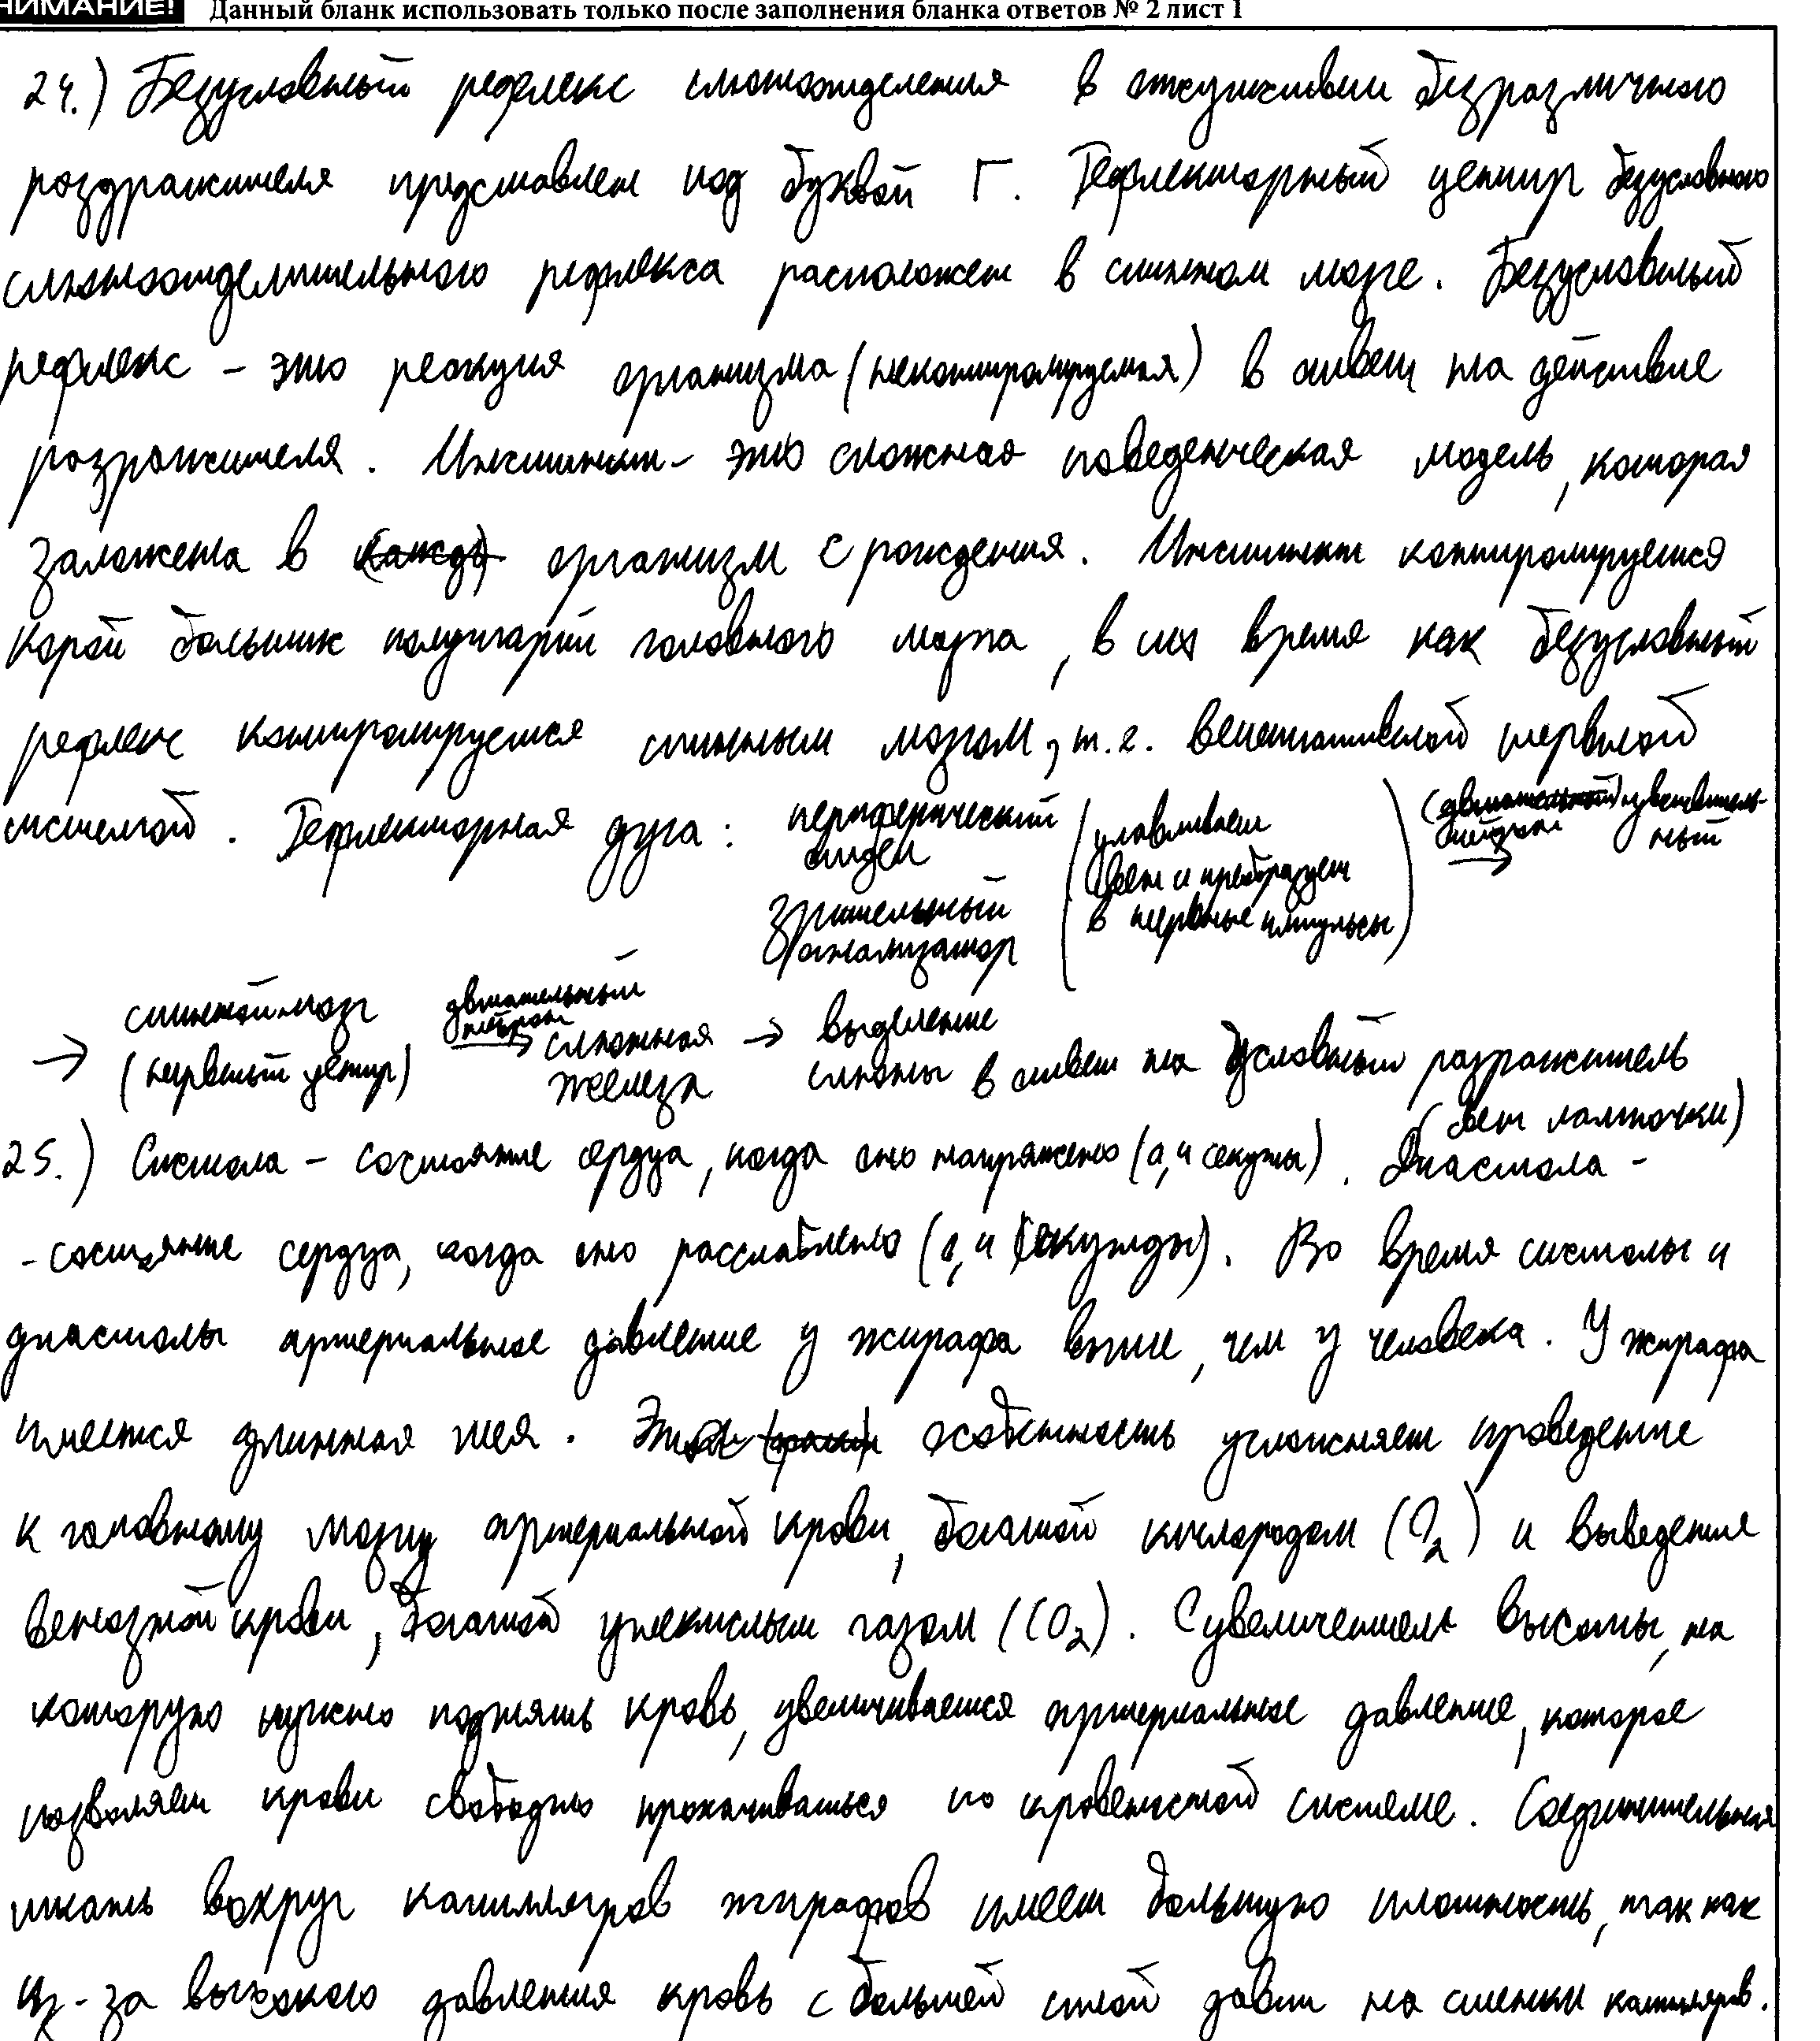 НИМАНИЕ! Данный бланк использовать только после заполнения бланка ответов № 2 лист 1
24.) Безусловный рефлекс слюноотделения в отсутствии безразличного
раздражителя представлен под буквой Г. Рефлекторный центр безусловного
слюноотделительного рефлекса расположен в спинном мозге. Безусловный
рефлекс – это реакция организма (неконтролируемая) в ответ на действие
розрожителя. Инстинкт – это сложная поведенческая модель, которая
заложена в организм с рождения. Инстинкт контролируется
корой больших полушарий головного мозга, в то время как безусловный
рефлекс контролируется спинным мозгом, т.е. вегетативной нервной
системой. Рефлекторная дуга: периферический отдел зрительный анализатор (улавливает свет и преобразует в нервные импульсы) чувствительный нейрон →
→ спинной мозг (нервный центр) двигательный нейрон → слюнная железа → выделение слюны в ответ на условный разражитель
(свет лампочки)
25.) Систола – состояние сердца, когда оно напряжено (0,4 секунды). Диастола –
- состояние сердца, когда оно расслаблено (0,4 секунды). Во время систолы и
диастолы артериальное давление у жирафа выше, чем у человека. У жирафа
имеется длинная шея. Эта особенность усложняет проведение
к головному мозгу артериальной крови, богатой кислородом (O₂) и выведения
венозной крови, богатой углекислым газом (CO₂). С увеличением высоты, на
которую нужно поднять кровь, увеличивается артериальное давление, которое
позволяет крови свободно прокачиваться по кровеносной системе. Соединительная
ткань вокруг капилляров жирафов имеет большую плотность, так как
из-за высокого давления кровь с большей силой давит на стенки капиляров.